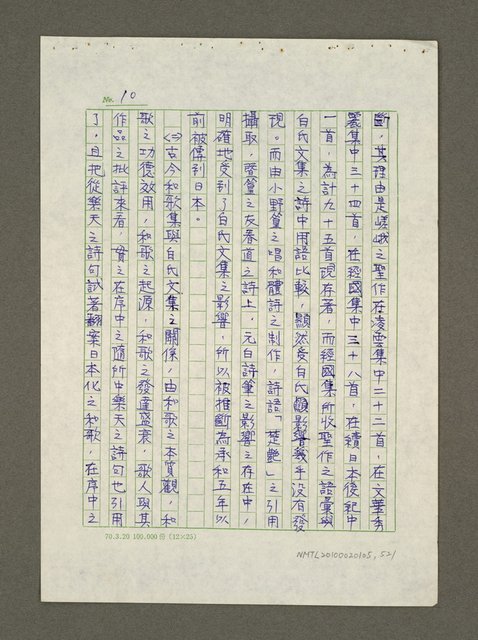 No. 10
斷，其理由是嵯峨之聖作在凌雲集中二十二首，在文華秀
麗集中三十四首，在經國集中三十八首，在續日本後記中
一首，為計九十五首現存著，而經國集所收聖作之語彙與
白氏文集之詩中用語比較，顯然受白氏影響幾乎沒有發
現。而由小野篁之唱和體詩之制作，詩語「楚艷」之引用
攝取，暨篁之友春道之詩上，元白詩篁之影響之存在中，
明確地受到了白氏文集之影響，所以被推斷為承和五年以
前被傳到日本。
㈡古今和歌集與白氏文集之關係，由和歌之本質觀，和
歌之功德效用，和歌之起源，和歌之發達盛衰，歌人與其
作品之批評來看，貫之在序中之隨所中樂天之詩句也引用
了。且把從樂天之詩句試著翻案日本化之和歌，在序中之
70.3.20 100.000份(12×25)
NMTL20100020105, 521